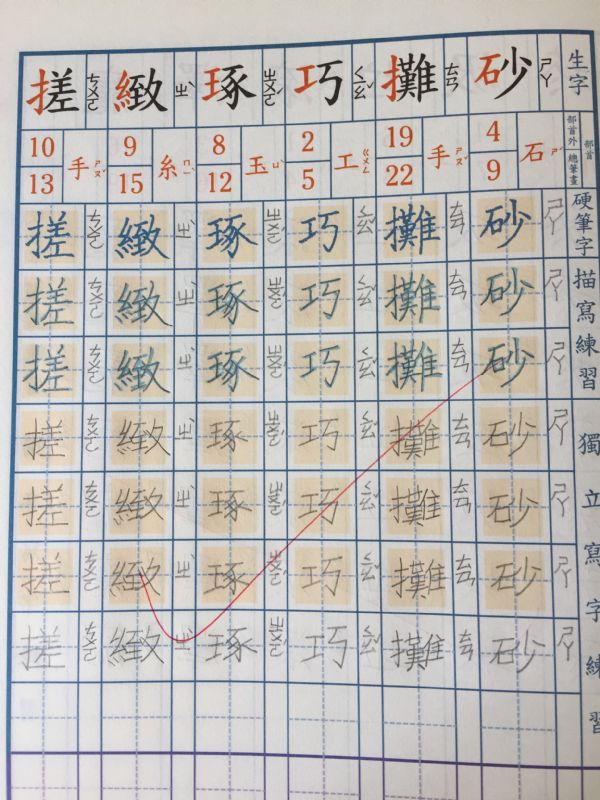 生字
部首
部首外
總筆畫
硬筆字描寫練習
獨立寫字練習
砂 ㄕㄚ
4
9
石 ㄕˊ
砂 ㄕㄚ
砂 ㄕㄚ
砂 ㄕㄚ
砂 ㄕㄚ
砂 ㄕㄚ
砂 ㄕㄚ
砂 ㄕㄚ
攤 ㄊㄢ
19
22
手 ㄕㄡˇ
攤 ㄊㄢ
攤 ㄊㄢ
攤 ㄊㄢ
攤 ㄊㄢ
攤 ㄊㄢ
攤 ㄊㄢ
攤 ㄊㄢ
巧 ㄑㄧㄠˇ
2
5
工 ㄍㄨㄥ
巧 ㄑㄧㄠˇ
巧 ㄑㄧㄠˇ
巧 ㄑㄧㄠˇ
巧 ㄑㄧㄠˇ
巧 ㄑㄧㄠˇ
巧 ㄑㄧㄠˇ
巧 ㄑㄧㄠˇ
琢 ㄓㄨㄛˊ
8
12
玉 ㄩˋ
琢 ㄓㄨㄛˊ
琢 ㄓㄨㄛˊ
琢 ㄓㄨㄛˊ
琢 ㄓㄨㄛˊ
琢 ㄓㄨㄛˊ
琢 ㄓㄨㄛˊ
琢 ㄓㄨㄛˊ
緻 ㄓˋ
9
15
糸 ㄇㄧˋ
緻 ㄓˋ
緻 ㄓˋ
緻 ㄓˋ
緻 ㄓˋ
緻 ㄓˋ
緻 ㄓˋ
緻 ㄓˋ
搓 ㄘㄨㄛ
10
13
手 ㄕㄡˇ
搓 ㄘㄨㄛ
搓 ㄘㄨㄛ
搓 ㄘㄨㄛ
搓 ㄘㄨㄛ
搓 ㄘㄨㄛ
搓 ㄘㄨㄛ
搓 ㄘㄨㄛ